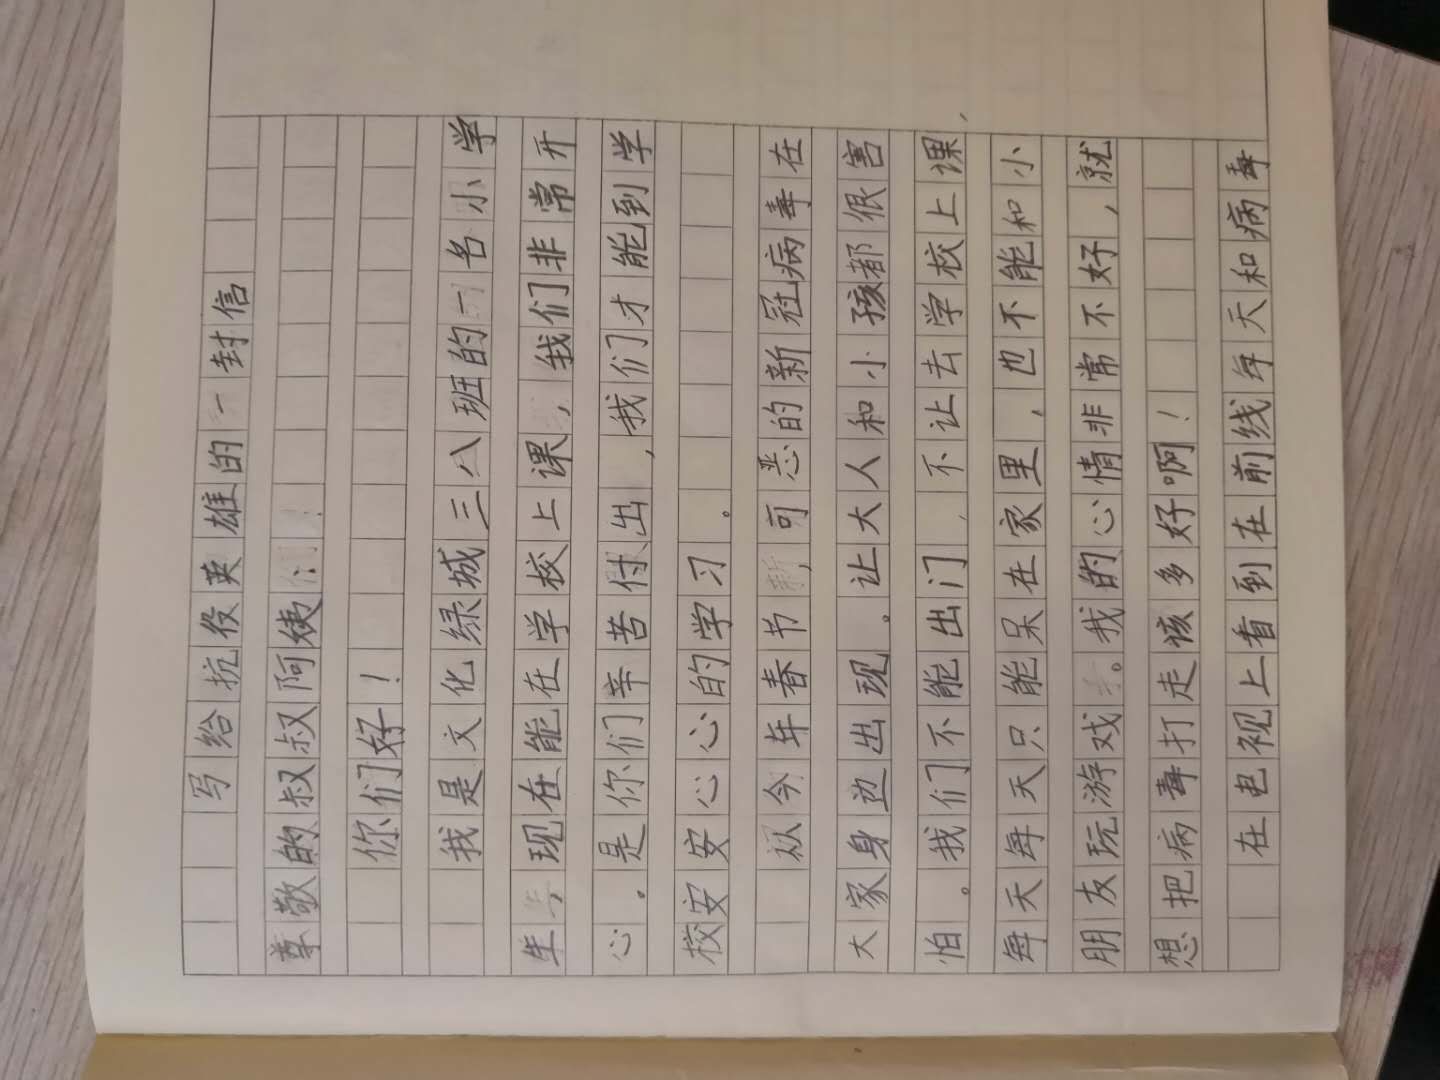 写给抗役英雄的一封信
尊敬的叔叔阿姨们:
你们好！
我是文化绿城三八班的一名小学
生,现在能在学校上课,我们非常开
心。是你们辛苦付出,我们才能到学
校安安心心的学习。
从今年春节,可恶的新冠病毒在
大家身边出现。让大人和小孩都很害
怕。我们不能出门,不让去学校上课
每天每天只能呆在家里,也不能和小
朋友玩游戏。我的心情非常不好,就
想把病毒打走该多好啊！
在电视上看到在前线每天和病毒